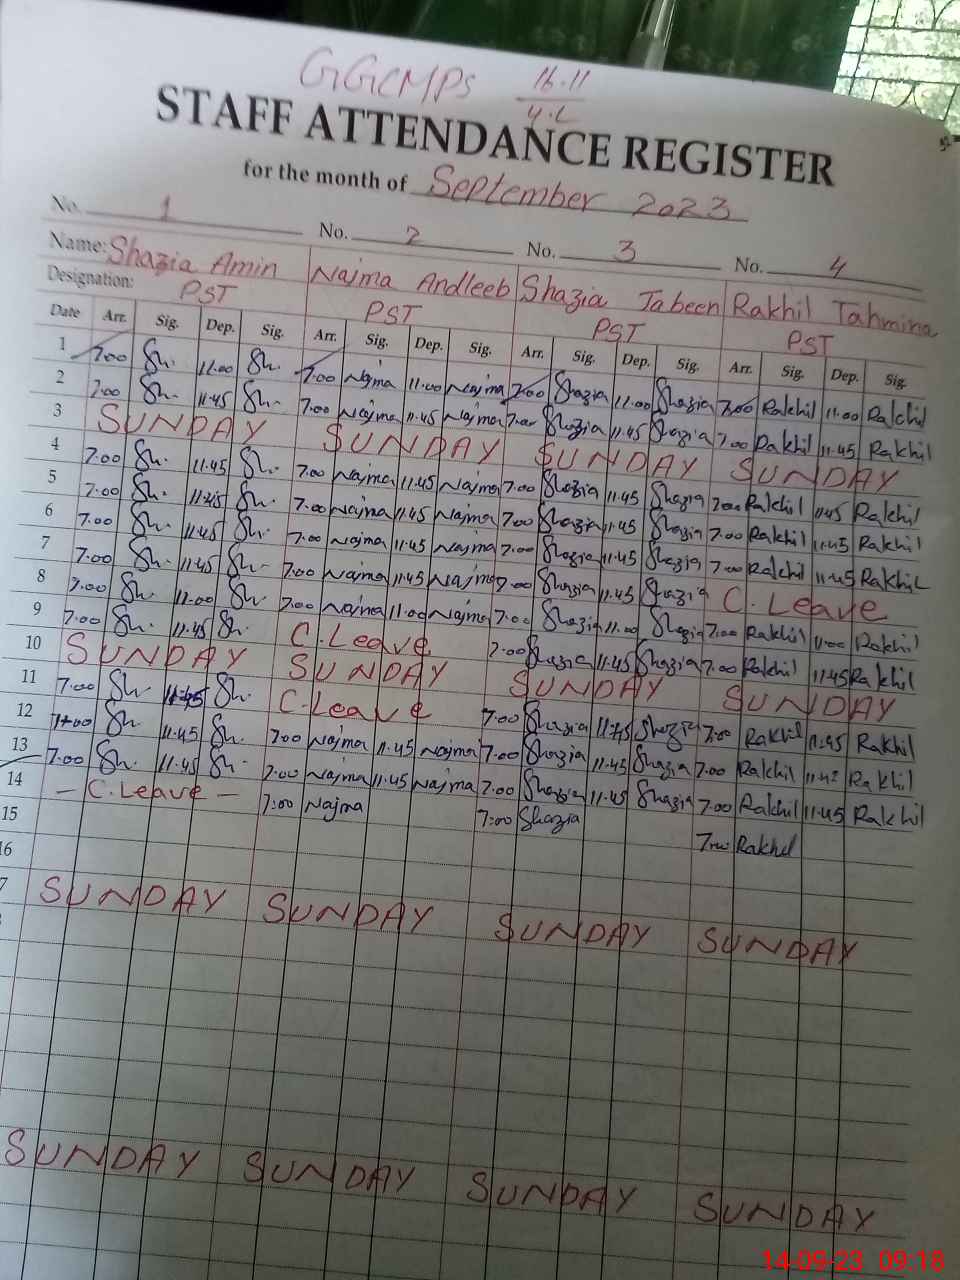 GGCMPS 16.11
4.L
STAFF ATTENDANCE REGISTER
for the month of September 2023
No. 1 No. 2 No. 3 No. 4
Name: Shazia Amin Najma Andleeb Shazia Jabeen Rakhil Tahmina
Designation: PST PST PST PST
Date Arr. Sig. Dep. Sig. Arr. Sig. Dep. Sig. Arr. Sig. Dep. Sig. Arr. Sig. Dep. Sig.
1 7.00 Sh. 11.00 Sh. 7.00 Najma 11.00 Najma 7.00 Shazia 11.00 Shazia 7.00 Rakhil 11.00 Rakhil
2 7.00 Sh. 11.45 Sh. 7.00 Najma 11.45 Najma 7.00 Shazia 11.45 Shazia 7.00 Rakhil 11.45 Rakhil
3 SUNDAY SUNDAY SUNDAY SUNDAY
4 7.00 Sh. 11.45 Sh. 7.00 Najma 11.45 Najma 7.00 Shazia 11.45 Shazia 7.00 Rakhil 11.45 Rakhil
5 7.00 Sh. 11.45 Sh. 7.00 Najma 11.45 Najma 7.00 Shazia 11.45 Shazia 7.00 Rakhil 11.45 Rakhil
6 7.00 Sh. 11.45 Sh. 7.00 Najma 11.45 Najma 7.00 Shazia 11.45 Shazia 7.00 Rakhil 11.45 Rakhil
7 7.00 Sh. 11.45 Sh. 7.00 Najma 11.45 Najma 7.00 Shazia 11.45 Shazia C. Leave
8 7.00 Sh. 11.00 Sh. 7.00 Najma 11.00 Najma 7.00 Shazia 11.00 Shazia 7.00 Rakhil 11.00 Rakhil
9 7.00 Sh. 11.45 Sh. C. Leave 7.00 Shazia 11.45 Shazia 7.00 Rakhil 11.45 Rakhil
10 SUNDAY SUNDAY SUNDAY SUNDAY
11 7.00 Sh 11.45 Sh. C. Leave 7.00 Shazia 11.45 Shazia 7.00 Rakhil 11.45 Rakhil
12 7.00 Sh. 11.45 Sh. 7.00 Najma 11.45 Najma 7.00 Shazia 11.45 Shazia 7.00 Rakhil 11.42 Rakhil
13 7.00 Sh. 11.45 Sh. 7.00 Najma 11.45 Najma 7.00 Shazia 11.45 Shazia 7.00 Rakhil 11.45 Rakhil
14 – C. Leave – 7:00 Najma 7:00 Shazia 7.00 Rakhil
15
16
7 SUNDAY SUNDAY SUNDAY SUNDAY
SUNDAY SUNDAY SUNDAY SUNDAY
14-09-23 09:18